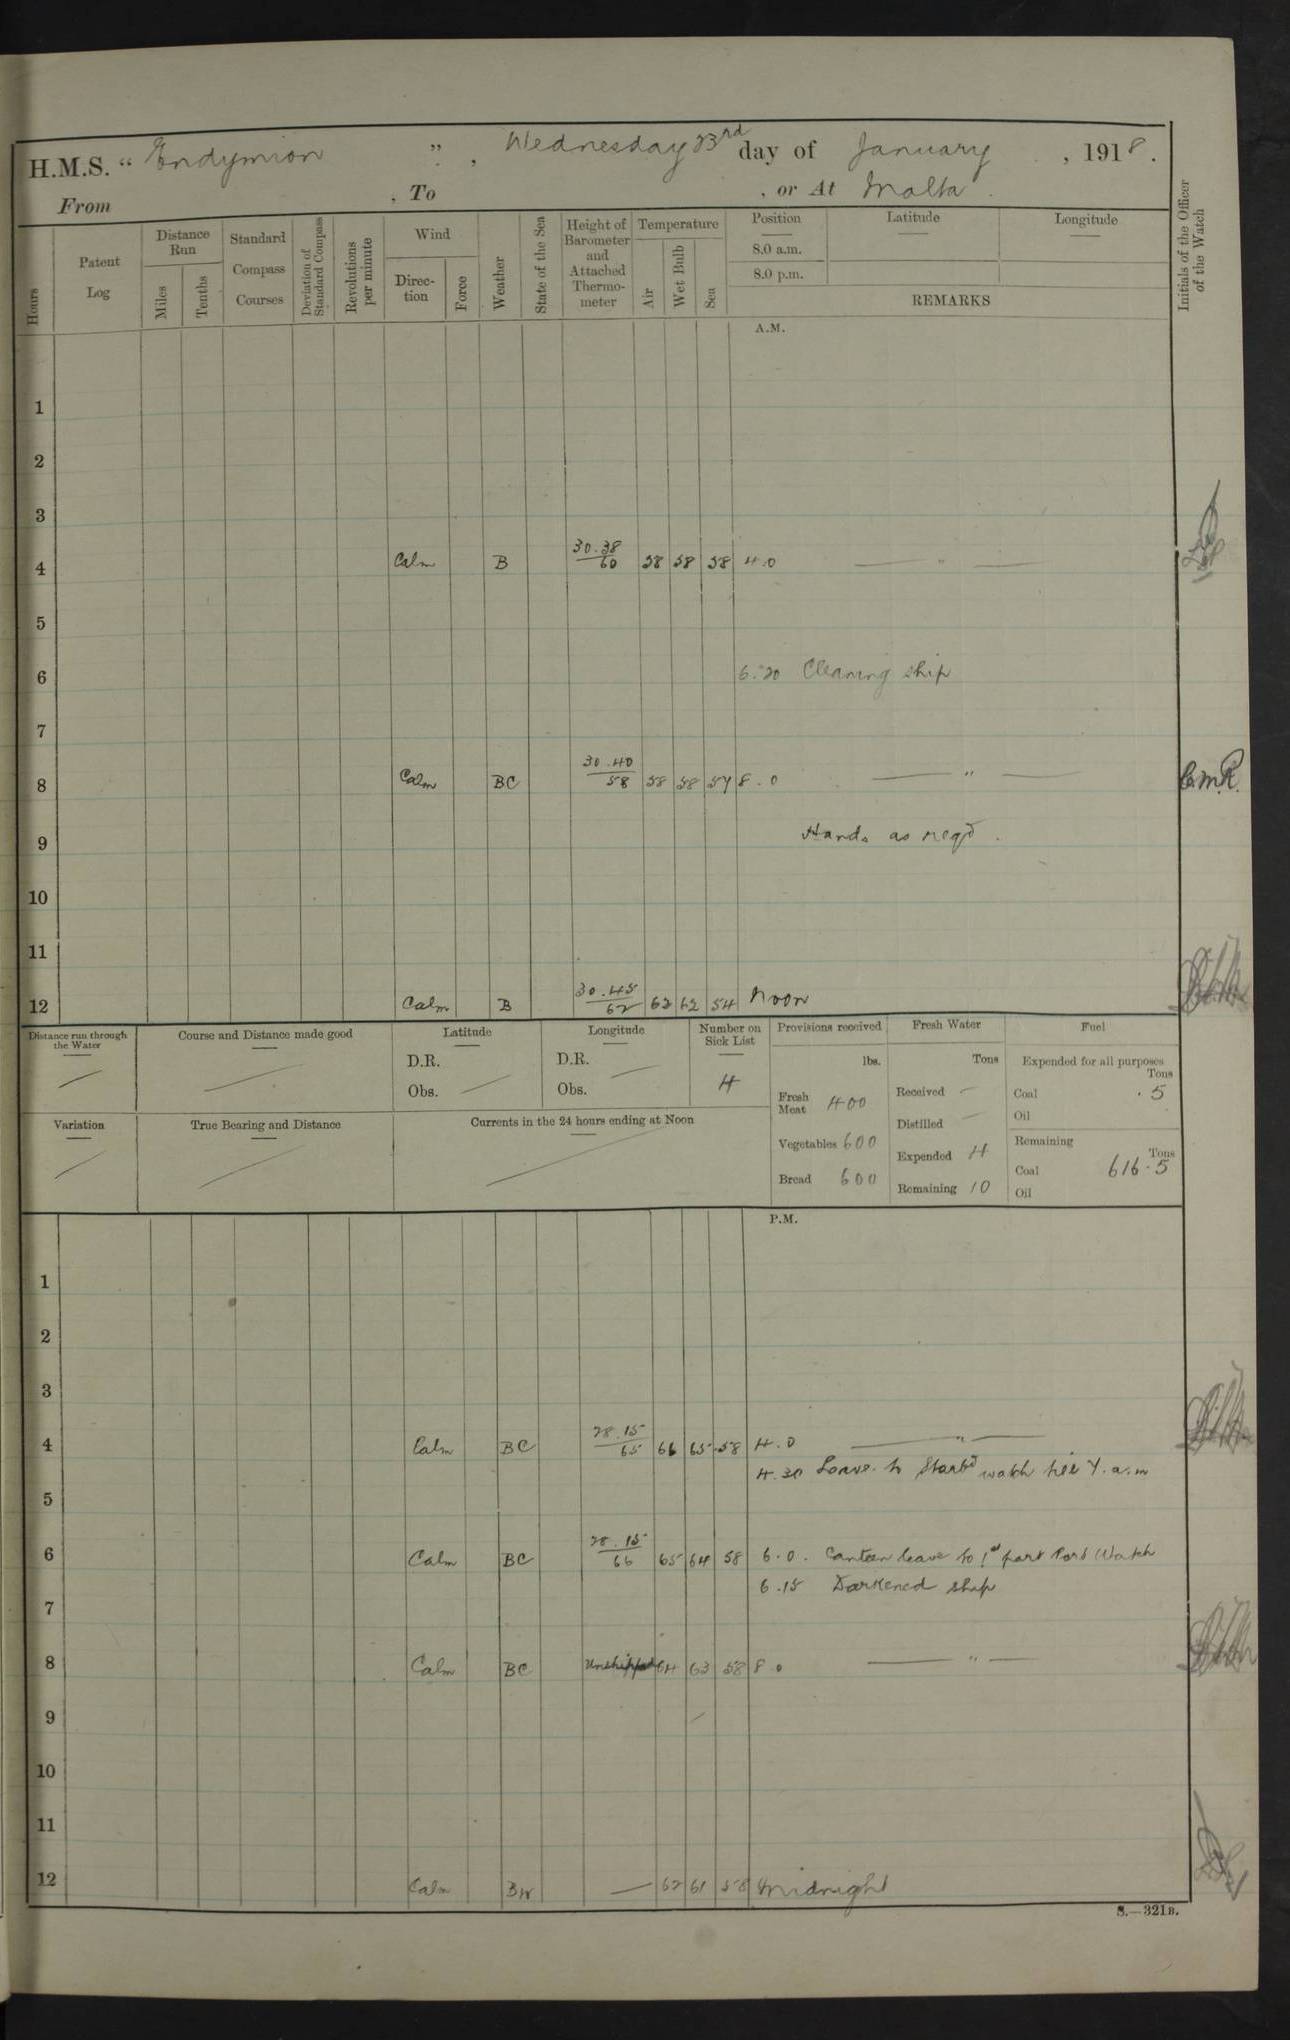 H.M.S. “ Endymion ” , Wednesday 23rd day of January , 1918.
From , To , or At Malta .
Hours
Patent Log
Distance Run
Miles
Tenths
Standard Compass Courses
Deviation of Standard Compass
Revolutions per minute
Wind
Direc-tion
Force
Weather
State of the Sea
Height of Barometer and Attached Thermo-meter
Temperature
Air
Wet Bulb
Sea
Position
8.0 a.m.
8.0 p.m.
Latitude
Longitude
REMARKS
Initials of the Officer of the Watch
A.M.
1
2
3
4 Calm B 30.38/60 58 58 58 4.0 — " —
5
6 6.20 Cleaning ship
7
8 Calm BC 30.40/58 58 58 54 8.0 — " — C.M.R.
9 Hands as reqd.
10
11
12 Calm B 30.45/62 62 62 54 Noon
Distance run through the Water
Course and Distance made good
Latitude
D.R.
Obs.
Longitude
D.R.
Obs.
Number on Sick List
4
Provisions received
lbs.
Fresh Meat 400
Vegetables 600
Bread 600
Fresh Water
Tons
Received —
Distilled —
Expended 4
Remaining 10
Fuel
Expended for all purposes
Tons
Coal . 5
Oil
Remaining
Tons
Coal 616.5
Oil
Variation
True Bearing and Distance
Currents in the 24 hours ending at Noon
P.M.
1
2
3
4 Calm BC 28.15/65 66 65 58 4.0 — " —
4.30 Leave to Starbd watch till 7. a.m
5
6 Calm BC 28.15/66 65 64 58 6.0. Canteen leave to 1st part Port Watch
6.15 Darkened ship
7
8 Calm BC Unshipped 64 63 58 8.0 — " —
9
10
11
12 Calm — 62 61 58 Midnight
S.—321B.